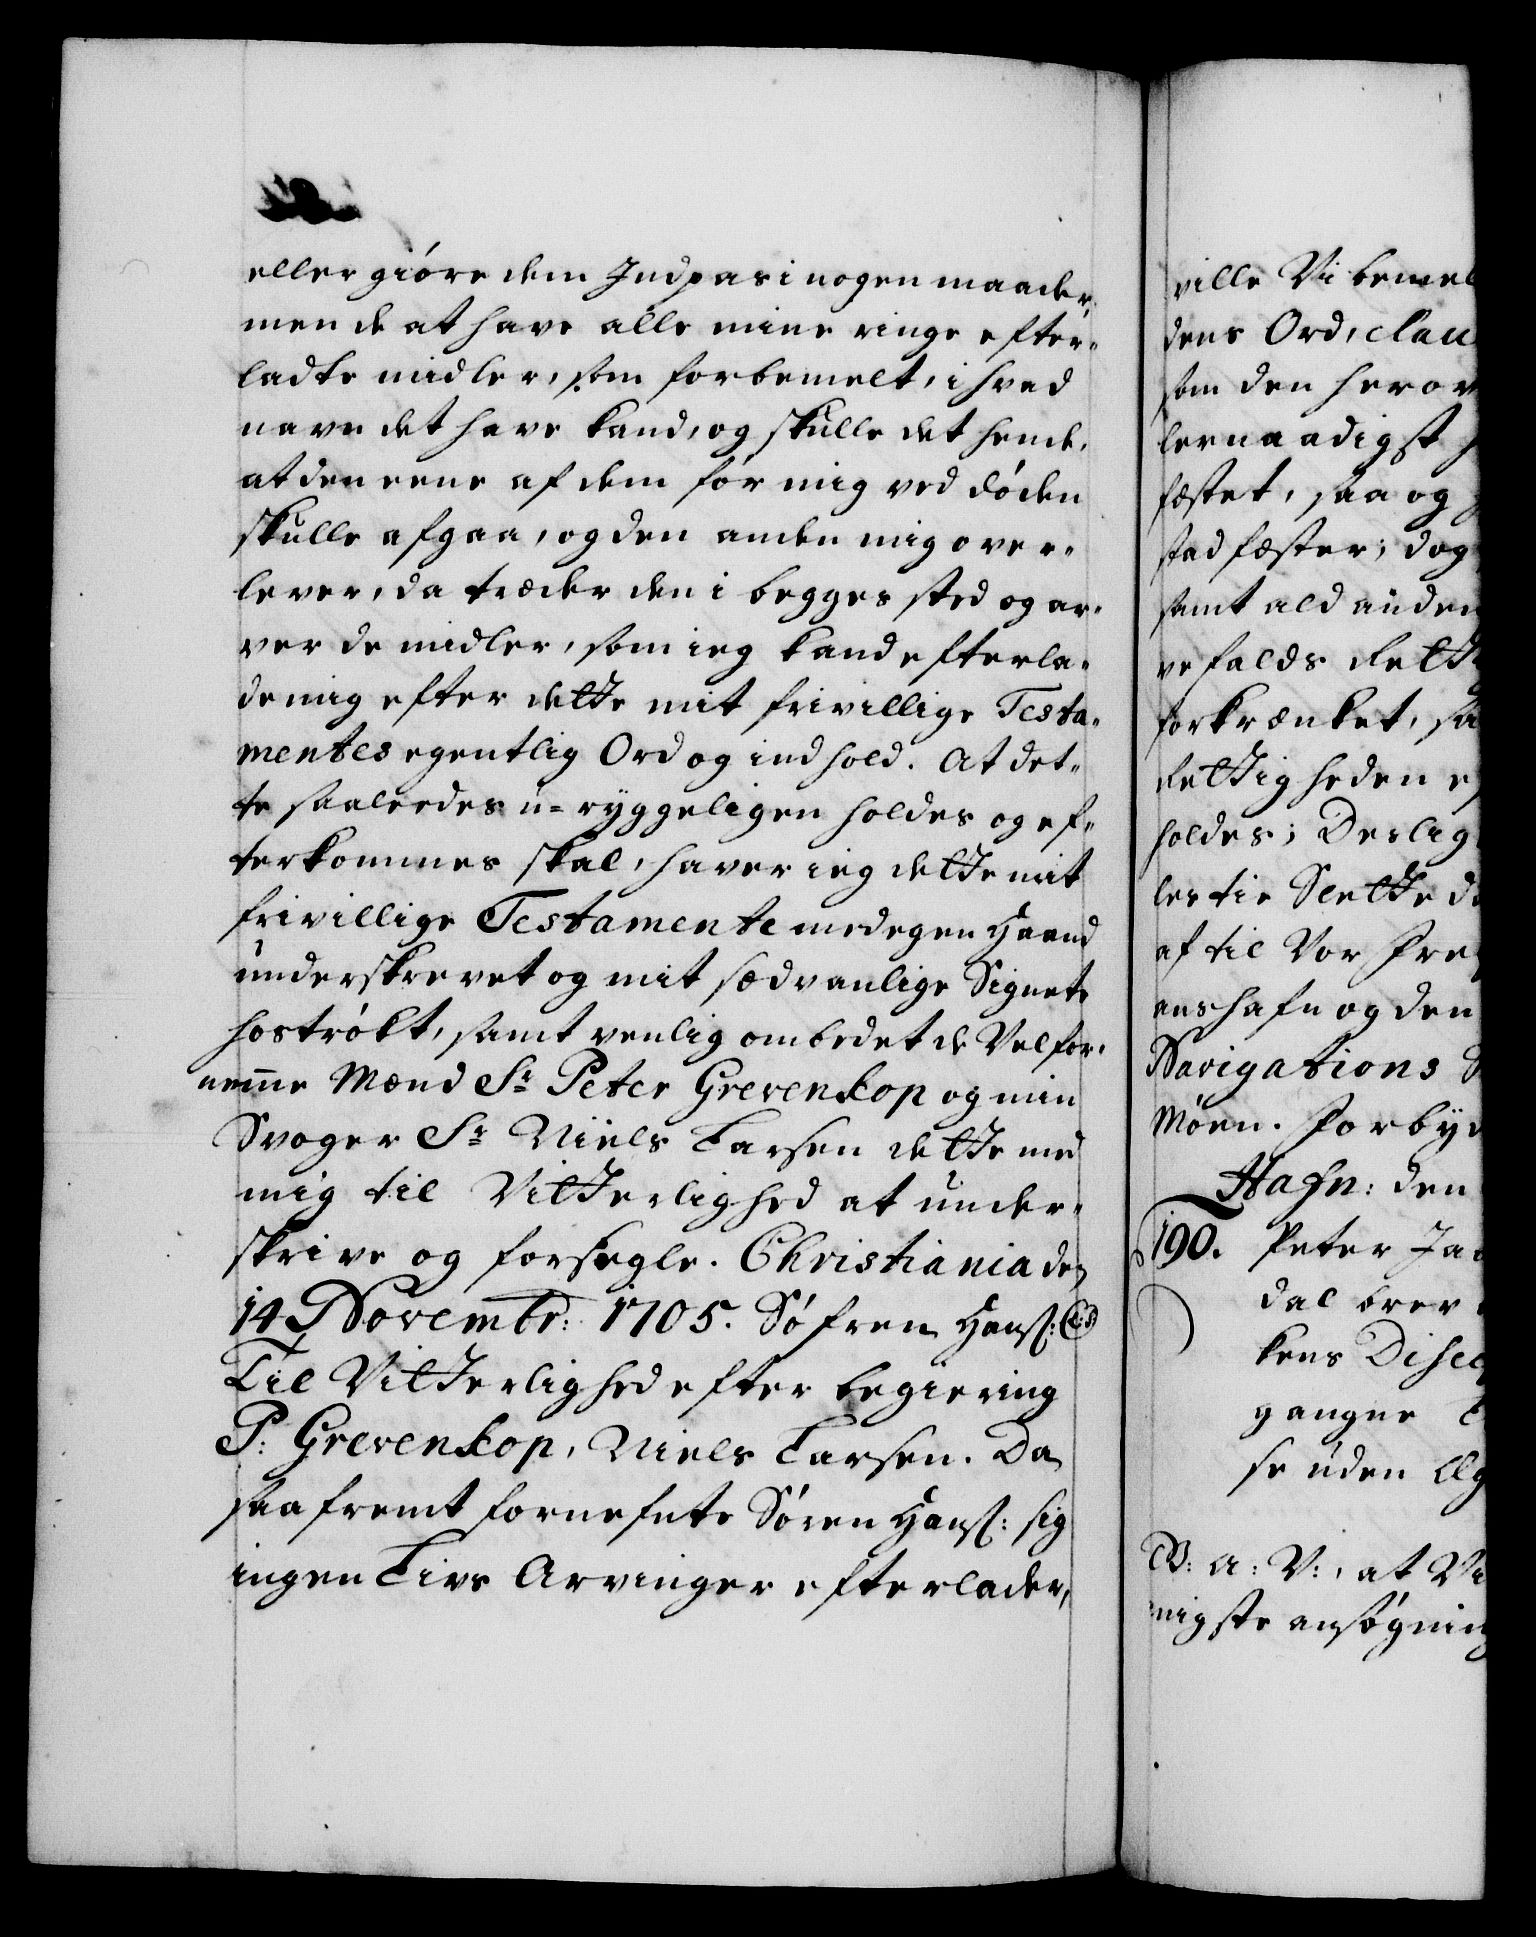 eller giöre dem Indpas i nogen maader,
men de at have alle mine ringe efter-
ladte midler, som forbemelt, i hvad
navn det have kand, og skulle det hende,
at den eene af dem for mig ved döden
skulle afgaa, og den anden mig over-
lever, da træder den i begges sted og ar-
ver de midler, som ieg kand efterla-
de mig efter dette mit frivillige Testa-
mentes egentlig Ord og indhold. At det-
te saaleedes u-ryggeligen holdes og ef-
terkommes skal, haver ieg dette mit
frivillige Testamente med egen Haand
underskrevet og mit sædvanlige Signete
hoströkt, samt venlig ombedet de Velfor-
nemme Mænd Sr Peter Grevenkop og min
Svoger Sr Niels Larsen dette med
mig til Vitterlighed at under-
skrive og forsegle. Christiania den
14 Novembr: 1705. Söfren Hans: (L.S)
Til Vitterlighed efter begiering
P: Grevenkop, Niels Larsen. Da
saafremt fornefnte Sören Hans: sig
ingen Livs Arvinger efterlader,
ville Vi bemel
dens Ord, clau
som den herov
lernaadigst
fæstet, saa og
stadfæster; dog
samt ald anden
vefalds Rett
forkrænket, sa
Rettigheden ef
holdes; Deslig
les tie Slette d
af til Vor
enshafn og den
Navigations
Möen. Forbyd
Hafn: den
190. Peter Ja
dal brev
kens Disc
gangne
se uden Æg
C.V: A: V:, at Vi
nigste ansögning